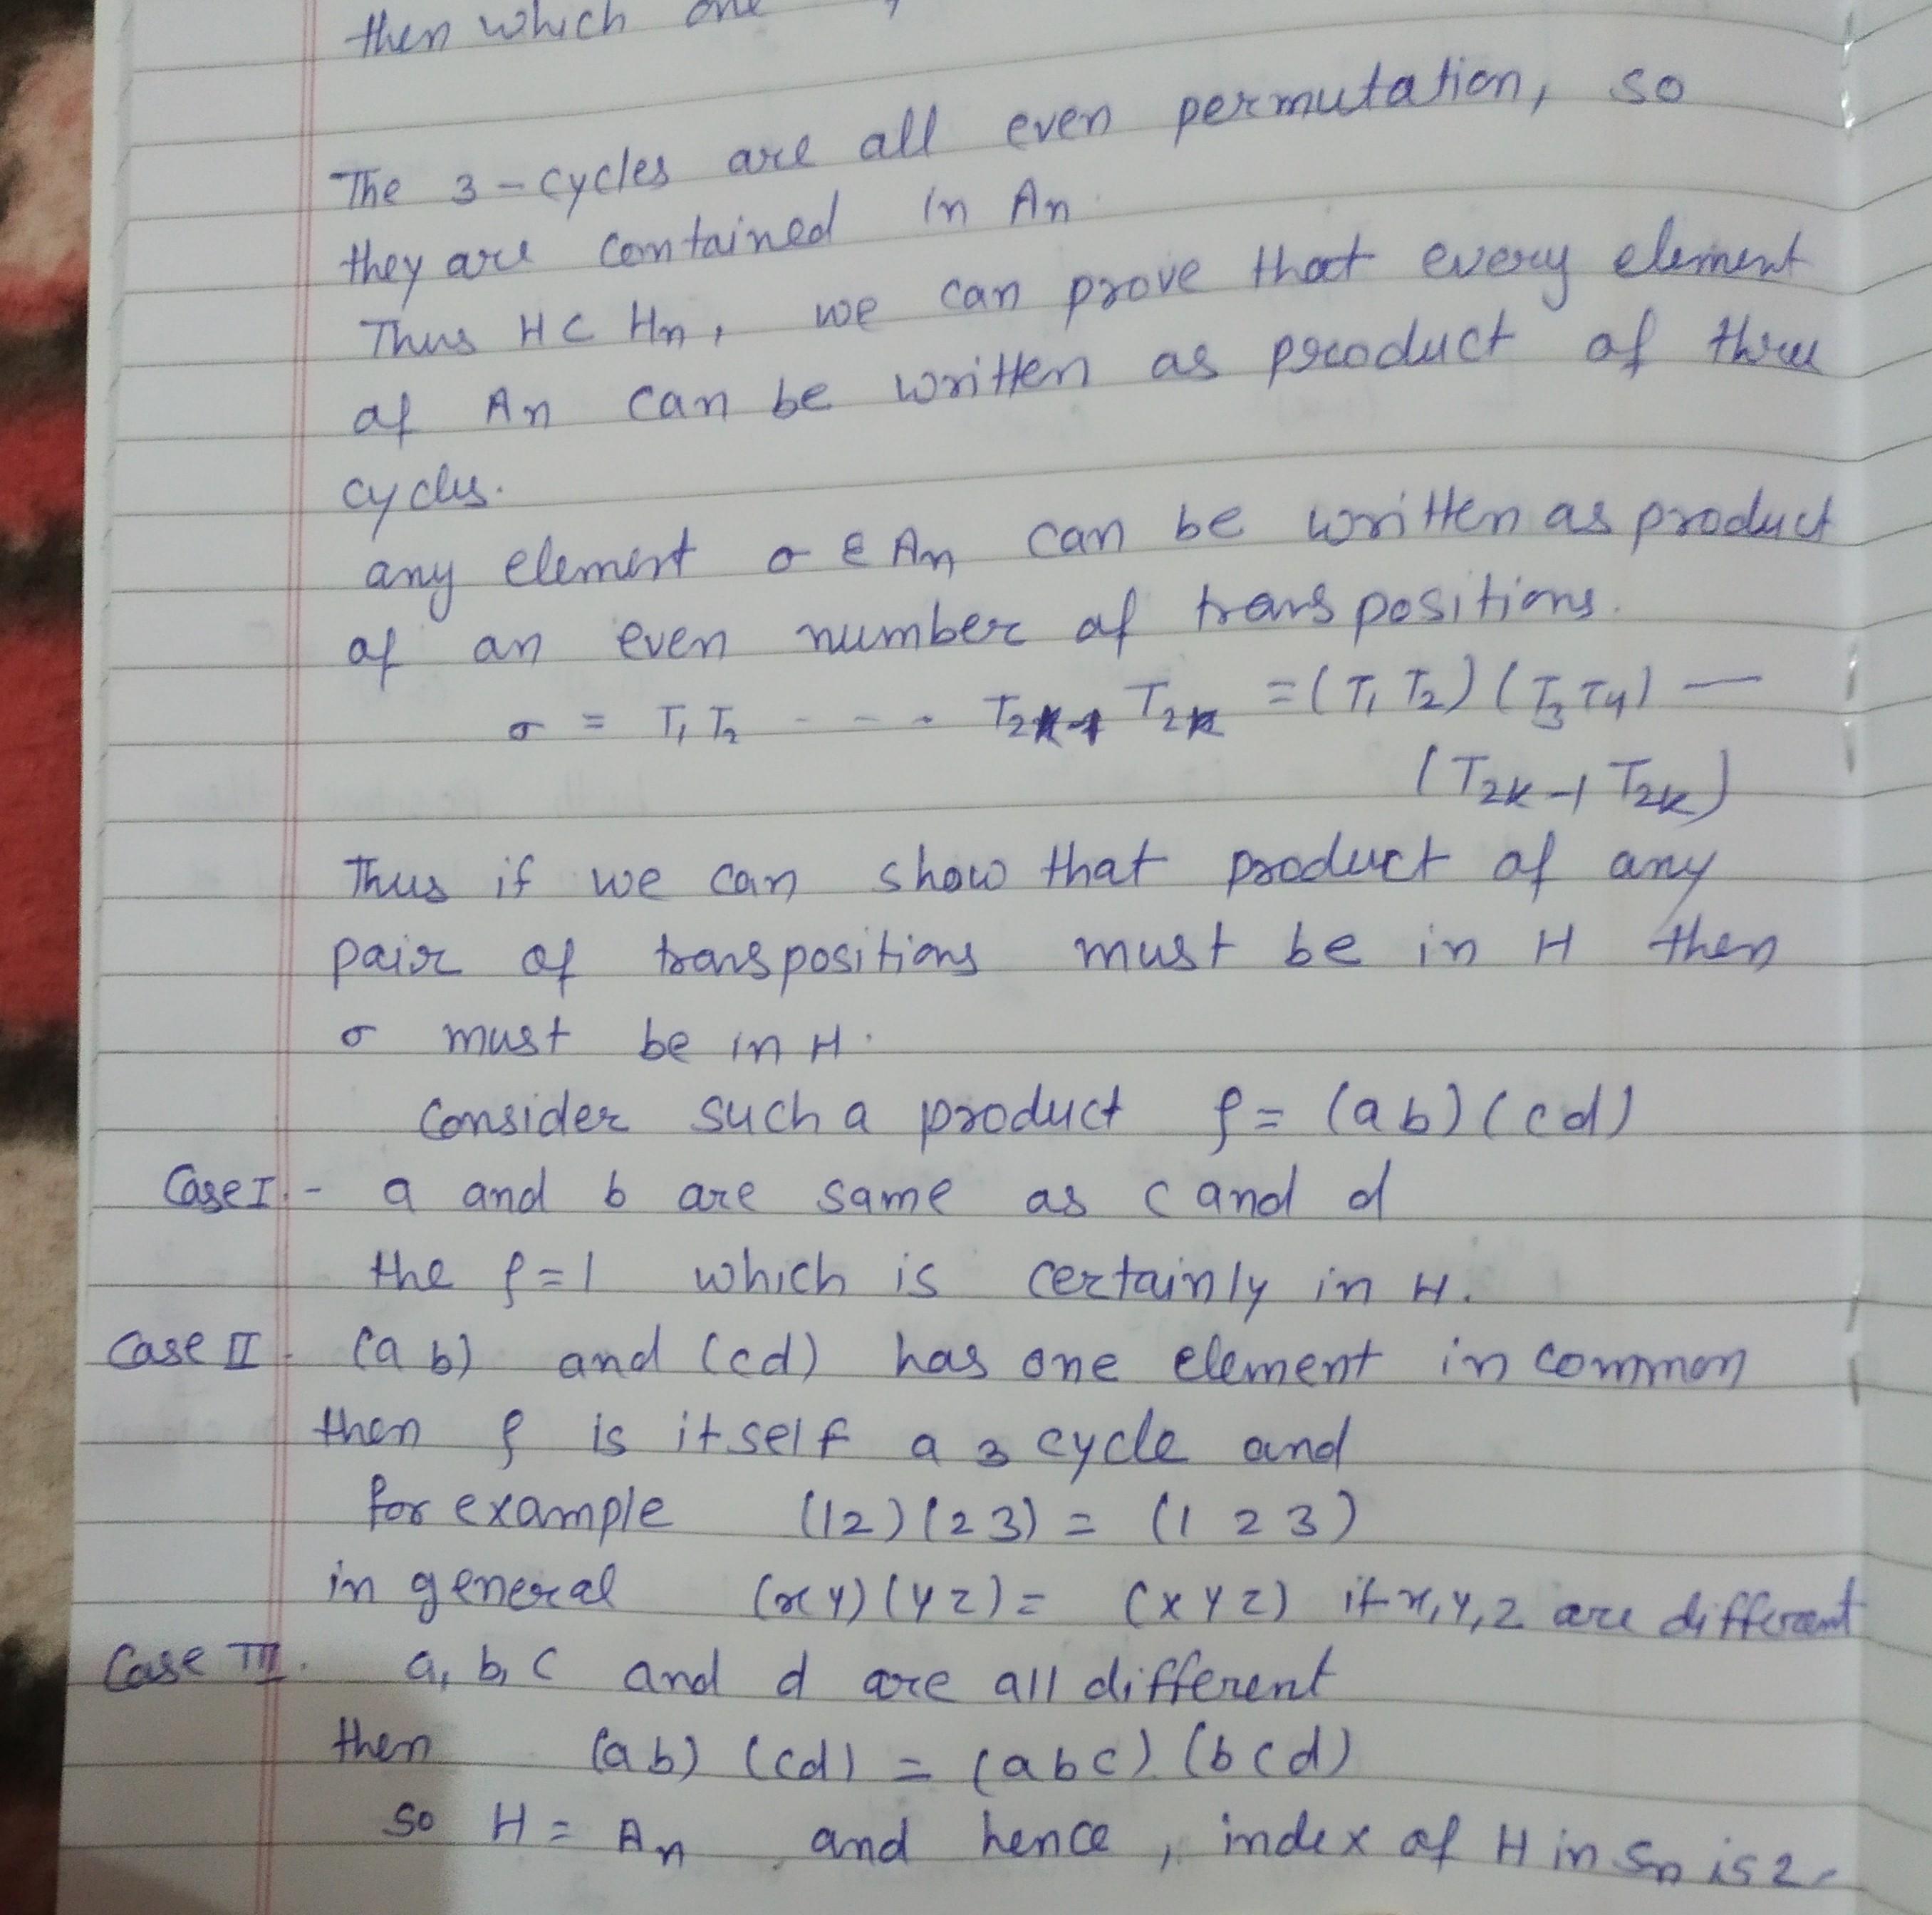 then which one
The 3-cycles are all even permutation, so
they are contained in An.
Thus H ⊂ Hn, we can prove that every element
of An can be written as product of three
cycles.
any element σ ∈ An can be written as product
of an even number of transpositions.
σ = T₁ T₂ - - - T₂ₖ₋₁ T₂ₖ = (T₁ T₂) (T₃ T₄) —
(T₂ₖ₋₁ T₂ₖ)
Thus if we can show that product of any
pair of transpositions must be in H then
σ must be in H.
Consider such a product ρ = (a b) (c d)
Case I.- a and b are same as c and d
the ρ = 1 which is certainly in H.
Case II. (a b) and (c d) has one element in common
then ρ is itself a 3 cycle and
for example (1 2) (2 3) = (1 2 3)
in general (x y) (y z) = (x y z) if x, y, z are different
Case III. a, b, c and d are all different
then (a b) (c d) = (a b c) (b c d)
so H = An and hence, index of H in Sn is 2.